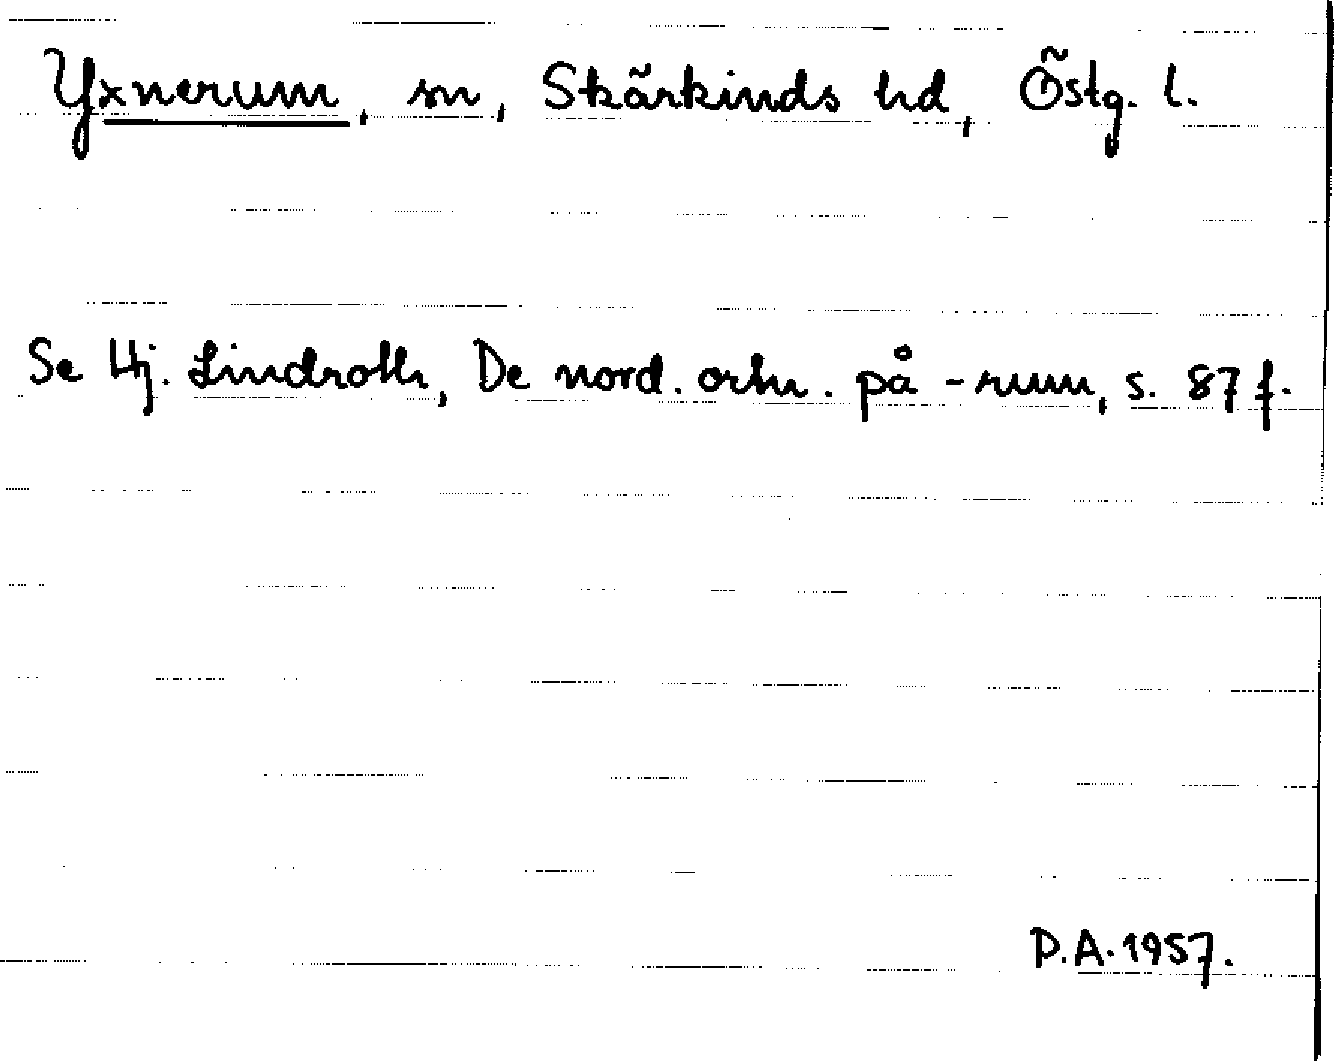 Yxnerum, sn, Skärkinds hd, Östg. l.
Se Hj. Lindroth, De nord. ortn. på -rum, s. 87 f.
D.A. 1957.